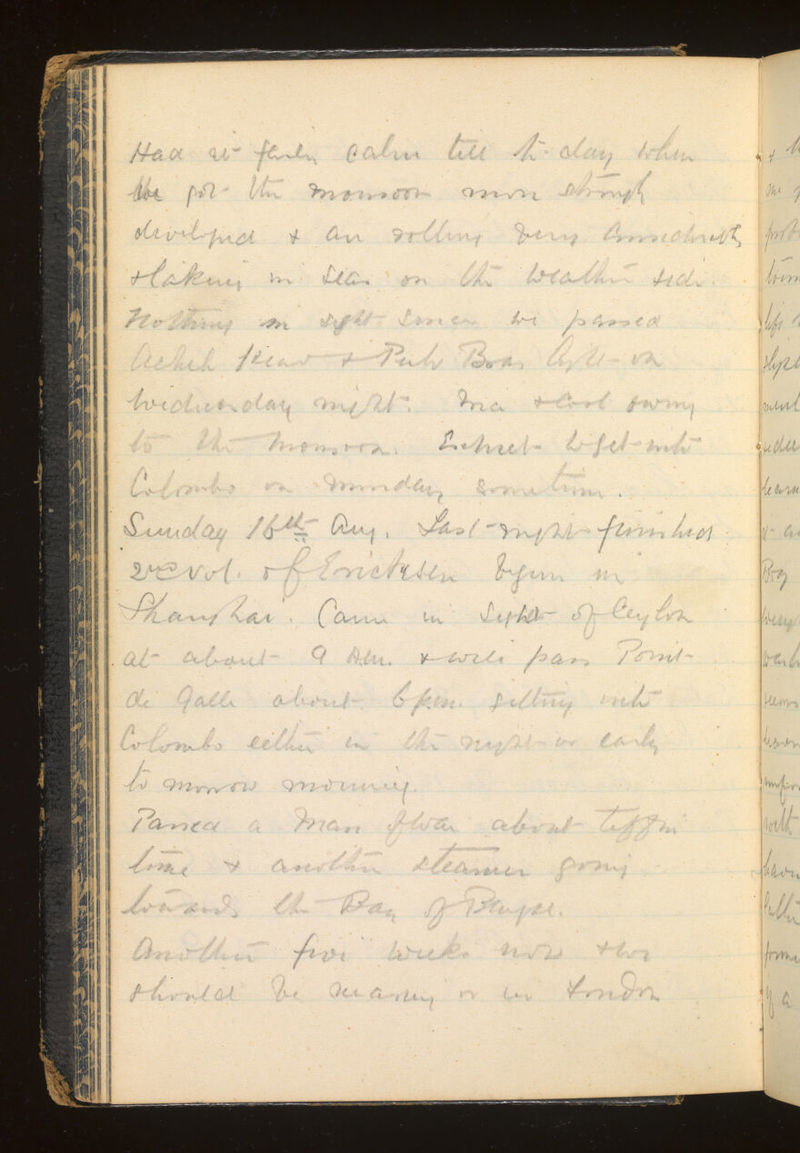 Had it fairly calm till to-day when
we got the monsoon more strongly
developed & are rolling very considerably
& taking in seas on the weather side.
Nothing in sight since we passed
Acheh Head & Pulo Bras light on
Wednesday night. Nice & cool owing
to the monsoon. Expect to get into
Colombo on Monday sometime.
Sunday 16th Aug. Last night finished
2nd vol. of begun in
Shanghai. Came in sight of Ceylon
at about 9 AM. & will pass Point
de Galle about 6 pm. getting into
Colombo either in the night or early
to morrow morning.
Passed a Man of War about tiffin
time & another steamer going
towards the Bay of Bengal.
Another five weeks now & we
should be nearing or in London